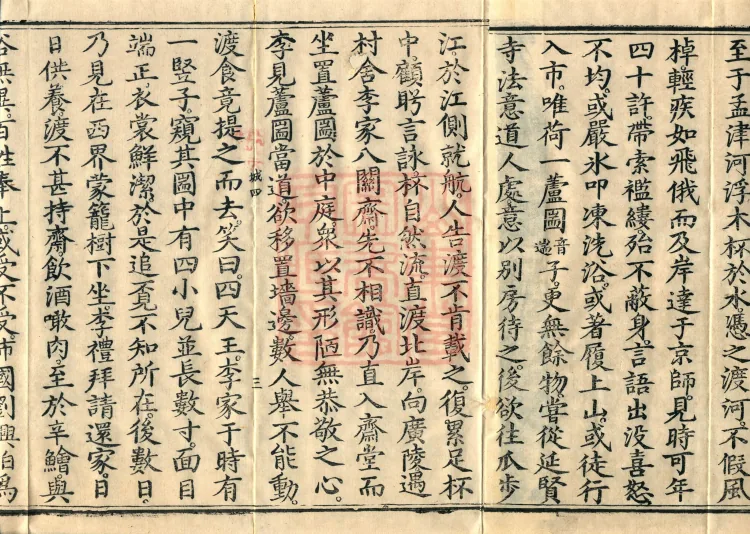 至于孟津河浮木杯於水。憑之渡河。不假風
棹輕疾如飛俄而及岸達于京師。見時可年
四十許。帶索襤縷。殆不蔽身。言語出没喜怒
不均。或嚴氷叩凍洗浴。或著履上山。或徒行
入市。唯荷一蘆圌音耑子。更無餘物。嘗從延賢
寺法意道人處意以別房待之。後欲往瓜步
江。於江側就航。人告渡不肯載之。復累足杯
中顧眄言詠。杯自然流。直渡北岸。向廣陵遇
村舍李家八關齋。先不相識。乃直入齋堂而
坐置蘆圌於中庭。衆以其形陋。無恭敬之心。
李見蘆圌當道。欲移置墻邊。數人舉不能動。
城四
三
渡食竟提之而去。笑曰。四天王。李家于時有
一竪子。窺其圌中有四小兒並長數寸。面目
端正。衣裳鮮潔。於是追覓不知所在。後數日。
乃見在西界蒙籠樹下坐。李禮拜請還家。日
日供養。渡不甚持齋。飲酒噉肉。至於辛鱠與
俗無異。百姓奉上。或受不受沛國劉興伯爲